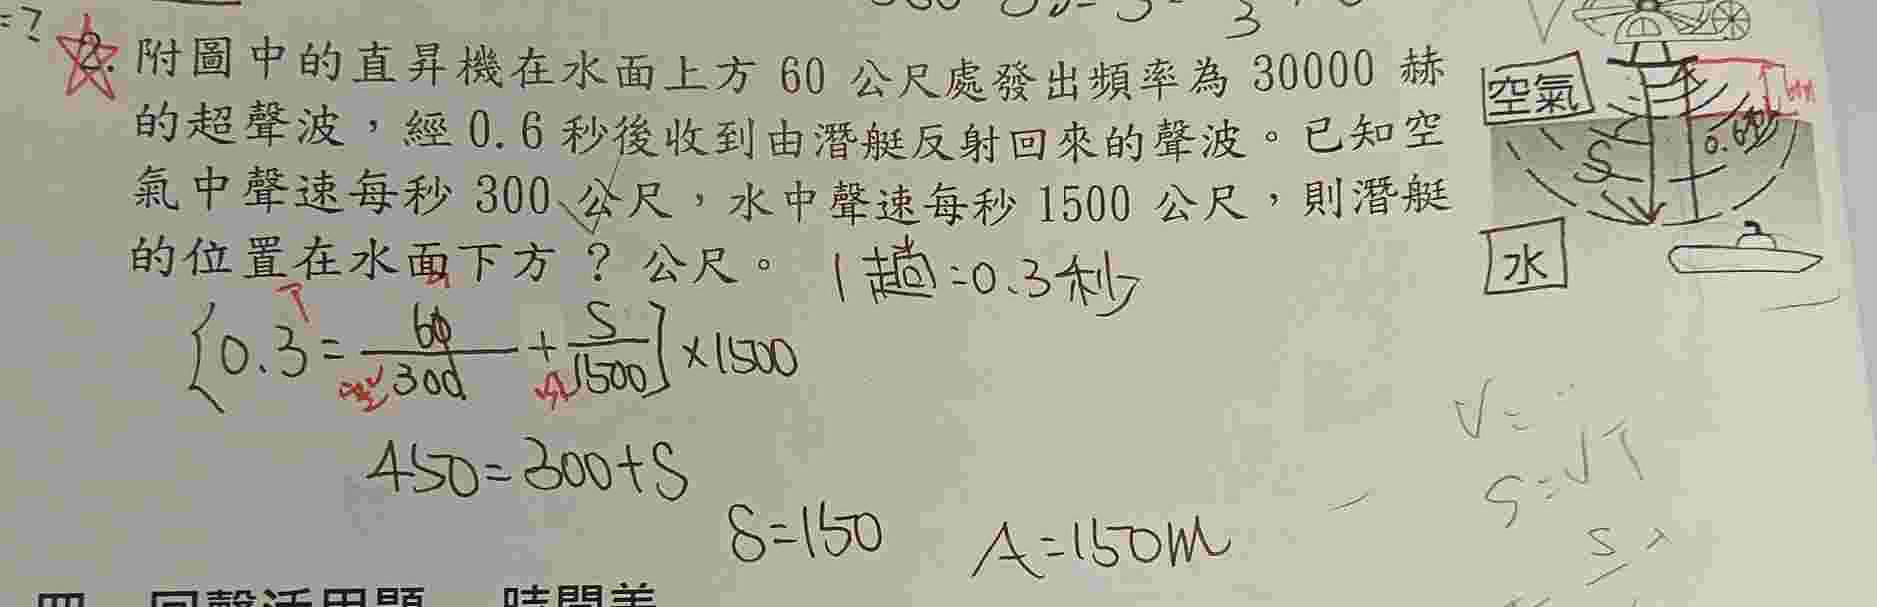 =?
2. 附圖中的直昇機在水面上方 60 公尺處發出頻率為 30000 赫
的超聲波，經 0.6 秒後收到由潛艇反射回來的聲波。已知空
氣中聲速每秒 300 公尺，水中聲速每秒 1500 公尺，則潛艇
的位置在水面下方 ? 公尺。
1趟=0.3秒
空氣
0.6秒
S
水
[0.3 = 60/300 + S/1500] ×1500
T
450=300+S
S=150
A=150m
V=
S=VT
S